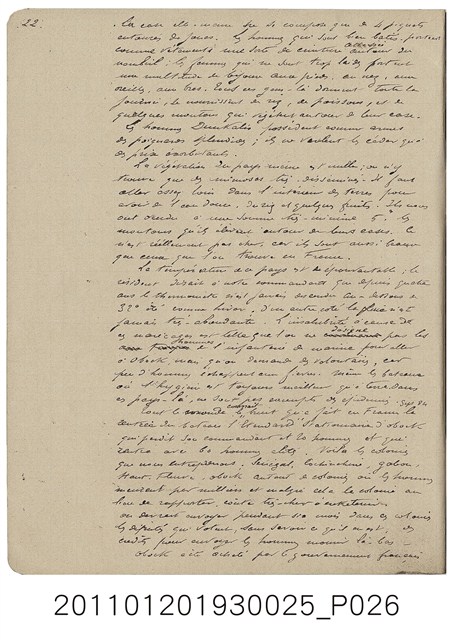 22.
La case elle-même ne se compose que de 4 piquets
entourés de joncs. Les hommes qui sont bien bâtis, portent
comme vêtements une sorte de ceinture attachée autour du
nombril. Les femmes qui ne sont trop laides portent
une multitude de bijoux aux pieds, au nez, aux
oreilles, aux bras. Tous ces gens-là dorment toute la
journée, se nourrissent de riz, de poissons, et de
quelques moutons qui végètent autour de leur case.
Les hommes Dankalis possèdent comme armes
des poignards splendides ; ils ne veulent les céder qu'à
des prix exorbitants.
La végétation du pays même est nulle, on n'y
trouve que des mimosas très disséminés. Il faut
aller assez loin dans l'intérieur des terres pour
avoir de l'eau douce, du riz et quelques fruits. Ils nous
ont vendu à une somme très minime 5f les
moutons qu'ils élèvent autour de leurs cases. Ce
n'est réellement pas cher, car ils sont aussi beaux
que ceux que l'on trouve en France.
La température de ce pays est épouvantable ; le
résident disait à notre commandant que depuis quatre
ans le thermomètre n'est jamais descendu au-dessous de
32° été comme hiver. D'un autre côté la pluie n'est
jamais très abondante. L'insalubrité à cause de
ces marécages est telle que l'on ne désigne pas les
hommes de l'infanterie de marine pour aller
à Obock mais qu'on demande des volontaires, car
peu d'hommes échappent aux fièvres. Même les bateaux
où l'hygiène est toujours meilleure qu'à terre dans
ces pays-là, ne sont pas exempts des épidémies.
Tout le monde connaît le bruit que fit en France la
rentrée du bateau l'Étendard stationnaire d'Obock
qui perdit son commandant et 20 hommes et qui
rentra avec 60 hommes alités. Voilà les colonies
que nous entreprenons ; Sénégal, Cochinchine, Gabon,
Haut-Fleuve, Obock autant de colonies où les hommes
meurent par milliers et malgré cela la colonie au
lieu de rapporter, coûte très cher d'entretien
on devrait envoyer pendant six mois dans ces colonies
les députés qui votent, sans savoir ce qu'il en est, des
crédits pour envoyer les hommes mourir là-bas
Obock a été acheté par le gouvernement français
201101201930025_P026